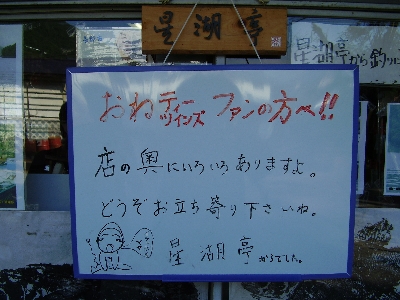 星湖亭
星湖亭から釣り
おねティー
ツインズ ファンの方へ!!
店の奥にいろいろありますよ。
どうぞお立ち寄り下さいね。
星湖亭からでした。